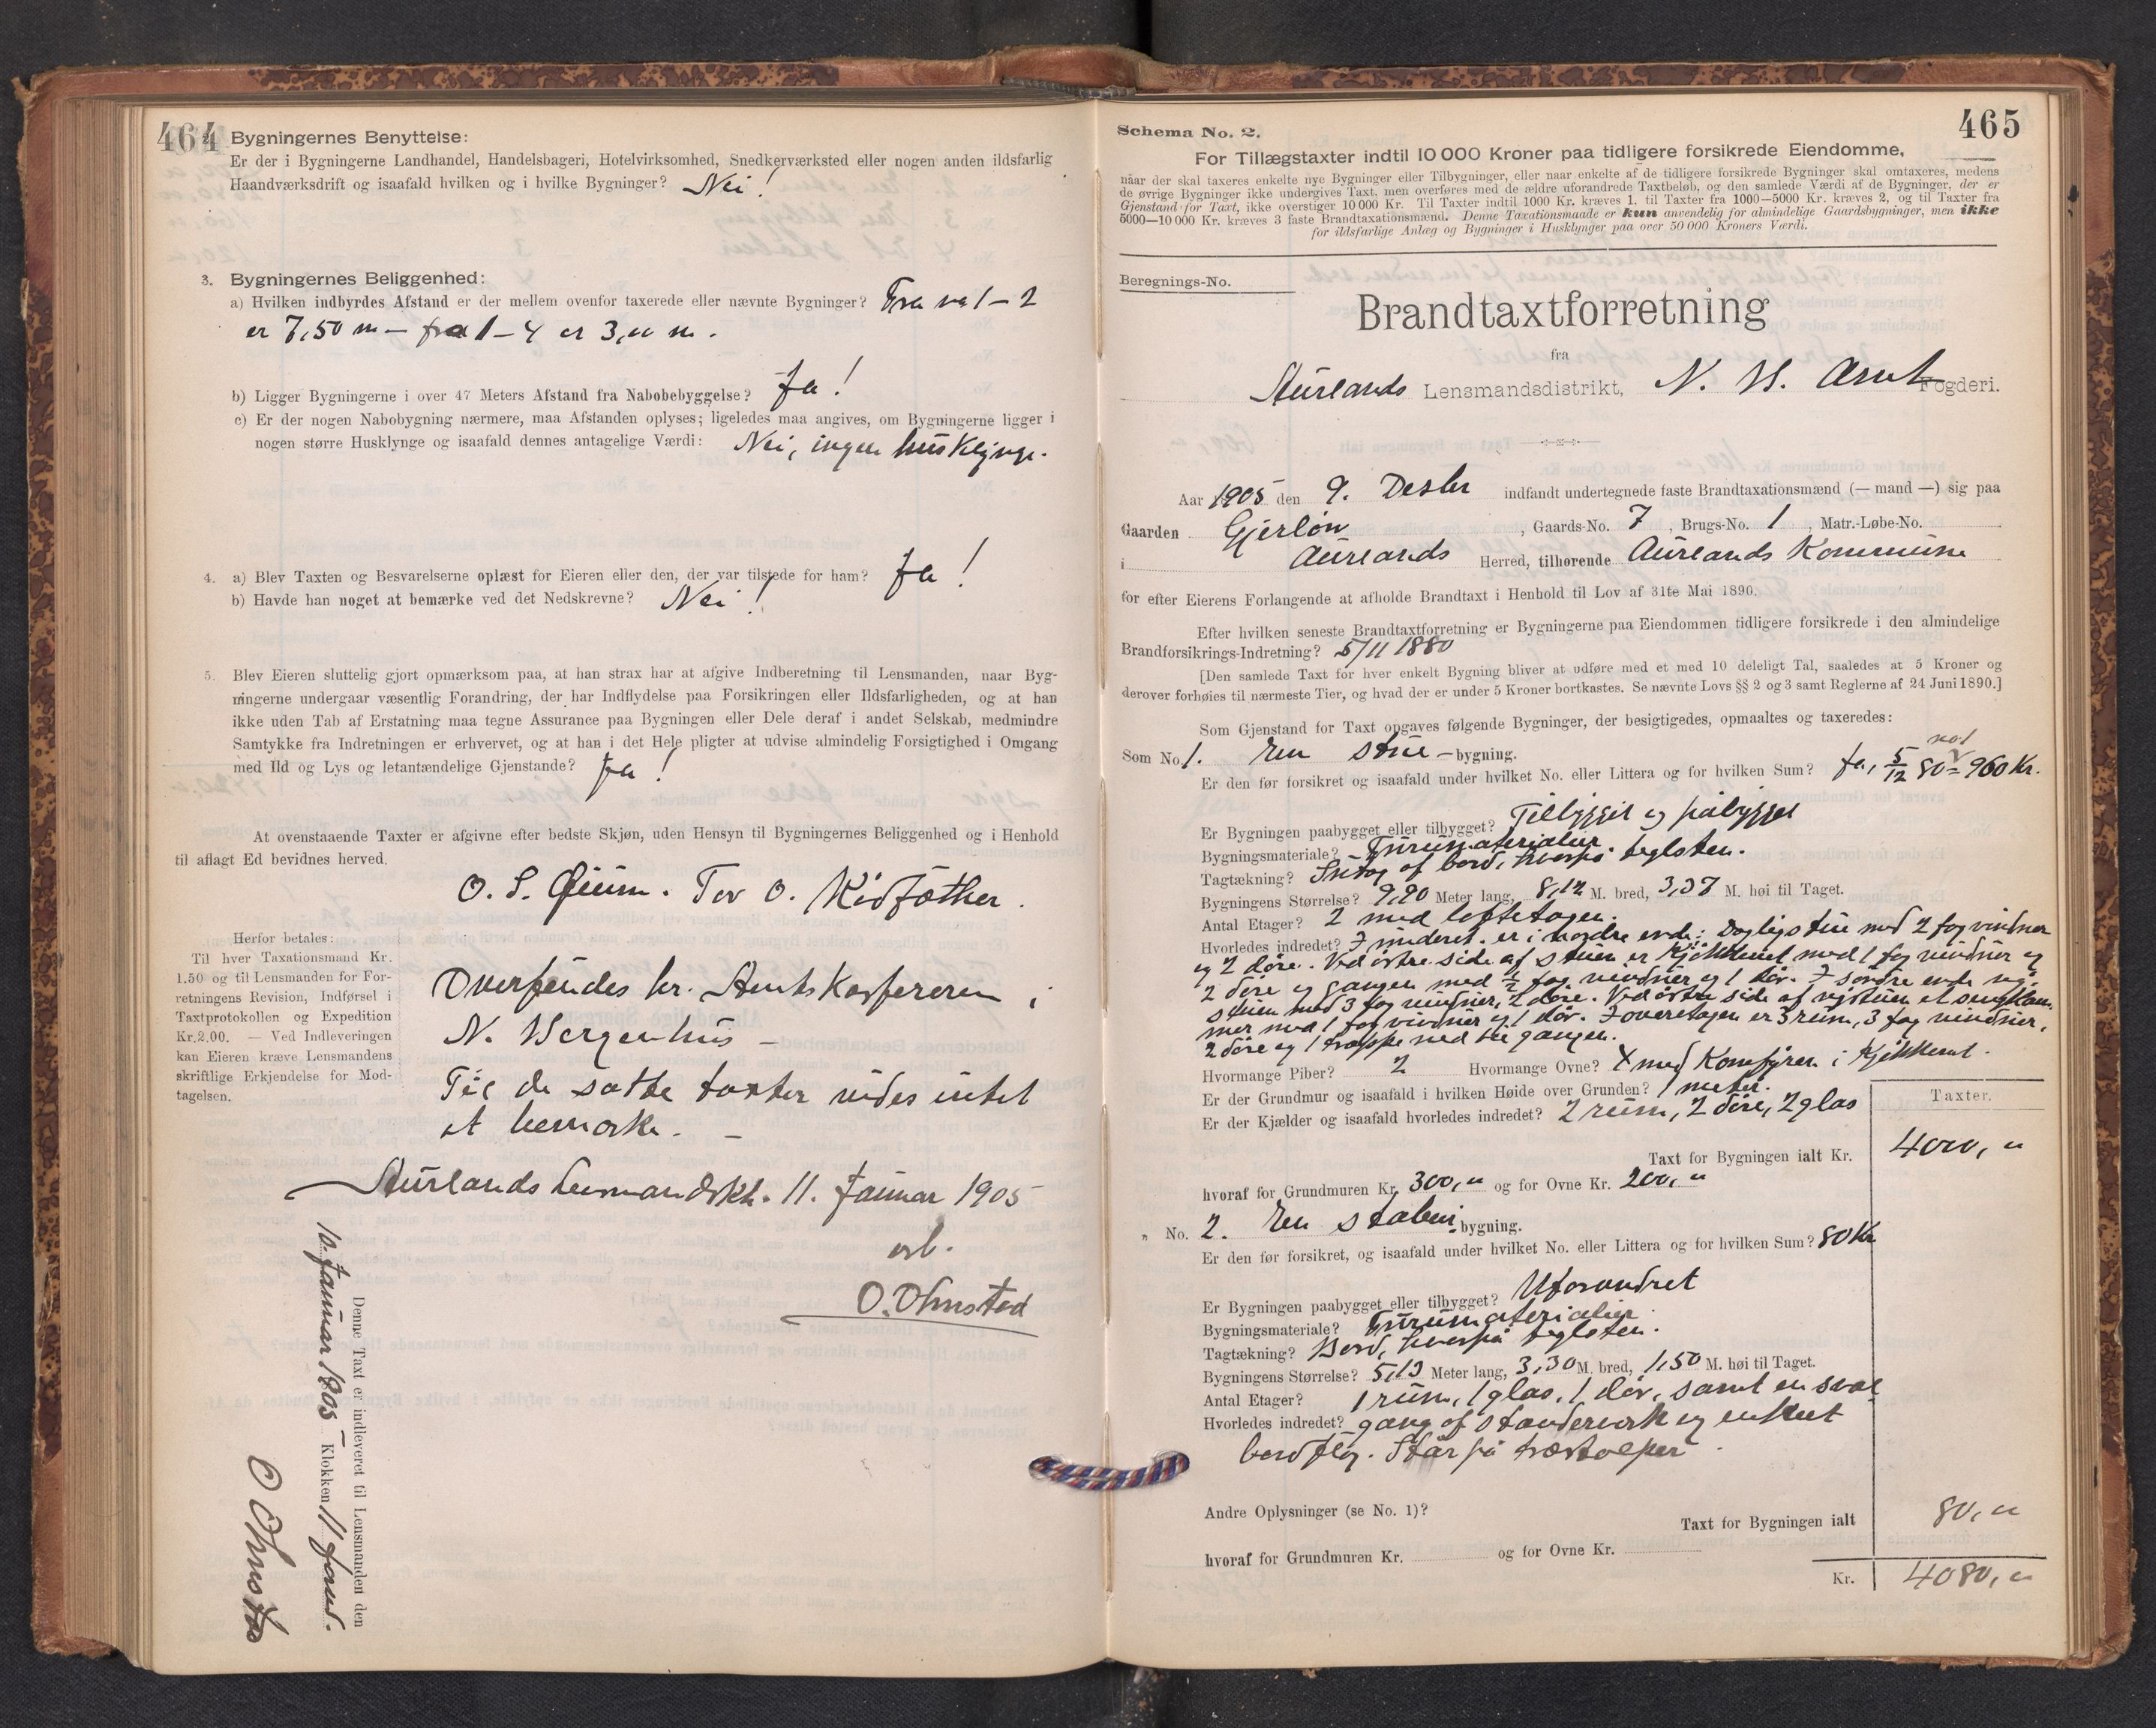 464
Bygningernes Benyttelse:
Er der i Bygningerne Landhandel, Handelsbageri, Hotelvirksomhed, Snedkerværksted eller nogen anden ildsfarlig
Haandværksdrift og isaafald hvilken og i hvilke Bygninger? Nei!
3. Bygningernes Beliggenhed:
a) Hvilken indbyrdes Afstand er der mellem ovenfor taxerede eller nævnte Bygninger? Fra no 1 – 2
er 7,50 m – fra 1 – 4 er 3,00 m.
b) Ligger Bygningerne i over 47 Meters Afstand fra Nabobebyggelse? Ja!
c) Er der nogen Nabobygning nærmere, maa Afstanden oplyses; ligeledes maa angives, om Bygningerne ligger i
nogen større Husklynge og isaafald dennes antagelige Værdi: Nei, ingen husklynge.
4. a) Blev Taxten og Besvarelserne oplæst for Eieren eller den, der var tilstede for ham? Ja!
b) Havde han noget at bemærke ved det Nedskrevne? Nei!
5. Blev Eieren sluttelig gjort opmærksom paa, at han strax har at afgive Indberetning til Lensmanden, naar Byg-
ningerne undergaar væsentlig Forandring, der har Indflydelse paa Forsikringen eller Ildsfarligheden, og at han
ikke uden Tab af Erstatning maa tegne Assurance paa Bygningen eller Dele deraf i andet Selskab, medmindre
Samtykke fra Indretningen er erhvervet, og at han i det Hele pligter at udvise almindelig Forsigtighed i Omgang
med Ild og Lys og letantændelige Gjenstande? Ja!
At ovenstaaende Taxter er afgivne efter bedste Skjøn, uden Hensyn til Bygningernes Beliggenhed og i Henhold
til aflagt Ed bevidnes herved.
O. S. Tor O.
Herfor betales:
Til hver Taxationsmand Kr.
1.50 og til Lensmanden for For-
retningens Revision, Indførsel i
Taxtprotokollen og Expedition
Kr. 2.00. — Ved Indleveringen
kan Eieren kræve Lensmandens
skriftlige Erkjendelse for Mod-
tagelsen.
Oversendes hr. Amtskassereren i
N. Bergenhus –
Til de satte taxter vides intet
at bemærke. –
Aurlands lensmandskt. 11. Januar 1905
erb.
O. Ohnstad
Denne Taxt er indleveret til Lensmanden den
10. Januar 1905 Klokken 11 form.
O Ohnstad
465
Schema No. 2.
For Tillægstaxter indtil 10 000 Kroner paa tidligere forsikrede Eiendomme,
naar der skal taxeres enkelte nye Bygninger eller Tilbygninger, eller naar enkelte af de tidligere forsikrede Bygninger skal omtaxeres, medens
de øvrige Bygninger ikke undergives Taxt, men overføres med de ældre uforandrede Taxtbeløb, og den samlede Værdi af de Bygninger, der er
Gjenstand for Taxt, ikke overstiger 10 000 Kr. Til Taxter indtil 1000 Kr. kræves 1, til Taxter fra 1000—5000 Kr. kræves 2, og til Taxter fra
5000—10 000 Kr. kræves 3 faste Brandtaxationsmænd. Denne Taxationsmaade er kun anvendelig for almindelige Gaardsbygninger, men ikke
for ildsfarlige Anlæg og Bygninger i Husklynger paa over 50 000 Kroners Værdi.
Beregnings-No.
Brandtaxtforretning
fra
Aurlands Lensmandsdistrikt, N. B. Amt Fogderi.
Aar 1905 den 9. Desbr indfandt undertegnede faste Brandtaxationsmænd (— mand —) sig paa
Gaarden Gjerløv, Gaards-No. 7, Brugs-No. 1, Matr.-Løbe-No.
i Aurlands Herred, tilhørende Aurlands Kommune
for efter Eierens Forlangende at afholde Brandtaxt i Henhold til Lov af 31te Mai 1890.
Efter hvilken seneste Brandtaxtforretning er Bygningerne paa Eiendommen tidligere forsikrede i den almindelige
Brandforsikrings-Indretning? 5/11 1880
[Den samlede Taxt for hver enkelt Bygning bliver at udføre med et med 10 deleligt Tal, saaledes at 5 Kroner og
derover forhøies til nærmeste Tier, og hvad der er under 5 Kroner bortkastes. Se nævnte Lovs §§ 2 og 3 samt Reglerne af 24 Juni 1890.]
Som Gjenstand for Taxt opgaves følgende Bygninger, der besigtigedes, opmaaltes og taxeredes:
Som No 1. En stue – bygning.
no 1
Er den før forsikret og isaafald under hvilket No. eller Littera og for hvilken Sum? Ja, 5/12 80 = 960 Kr.
Er Bygningen paabygget eller tilbygget? Tilbygget og påbygget
Bygningsmateriale? Furumaterialier.
Tagtækning? af bord, hvorpå teglsten.
Bygningens Størrelse? 9,90 Meter lang, 8,12 M. bred, 3,37 M. høi til Taget.
Antal Etager? 2 med loftetagen.
Hvorledes indredet? I underet. er i nordre ende: Dagligstue med 2 fag vinduer
og 2 døre. Ved østre side af stuen er kjøkkenet med 1 fag vinduer og
2 døre og gangen med ½ fag vinduer og 1 dør. I søndre ende ny-
stuen med 3 fag vinduer, 2 døre. Ved østre side af nystuen et sengkam-
mer med 1 fag vinduer og 1 dør. I overetagen er 3 rum, 3 fag vinduer,
2 døre og 1 trappe ned til gangen.
Hvormange Piber? 2 Hvormange Ovne? 4 med komfyren i kjøkkenet.
Er der Grundmur og isaafald i hvilken Høide over Grunden? 1 meter.
Er der Kjælder og isaafald hvorledes indredet? 2 rum, 2 døre, 2 glas
Taxter.
Taxt for Bygningen ialt Kr. 4000,00
hvoraf for Grundmuren Kr. 300,00 og for Ovne Kr. 200,00
" No. 2. En stabur bygning.
Er den før forsikret, og isaafald under hvilket No. eller Littera og for hvilken Sum? 80 Kr
Er Bygningen paabygget eller tilbygget? Uforandret
Bygningsmateriale? Furumaterialier.
Tagtækning? Bord, hvorpå teglsten.
Bygningens Størrelse? 5,13 Meter lang, 3,30 M. bred, 1,50 M. høi til Taget.
Antal Etager? 1 rum, 1 glas, 1 dør, samt en sval
Hvorledes indredet? gang af standerverk og enkelt
bord. Står på træstolper.
Andre Oplysninger (se No. 1)?
Taxt for Bygningen ialt 80,00
hvoraf for Grundmuren Kr. og for Ovne Kr.
Kr. 4080,00